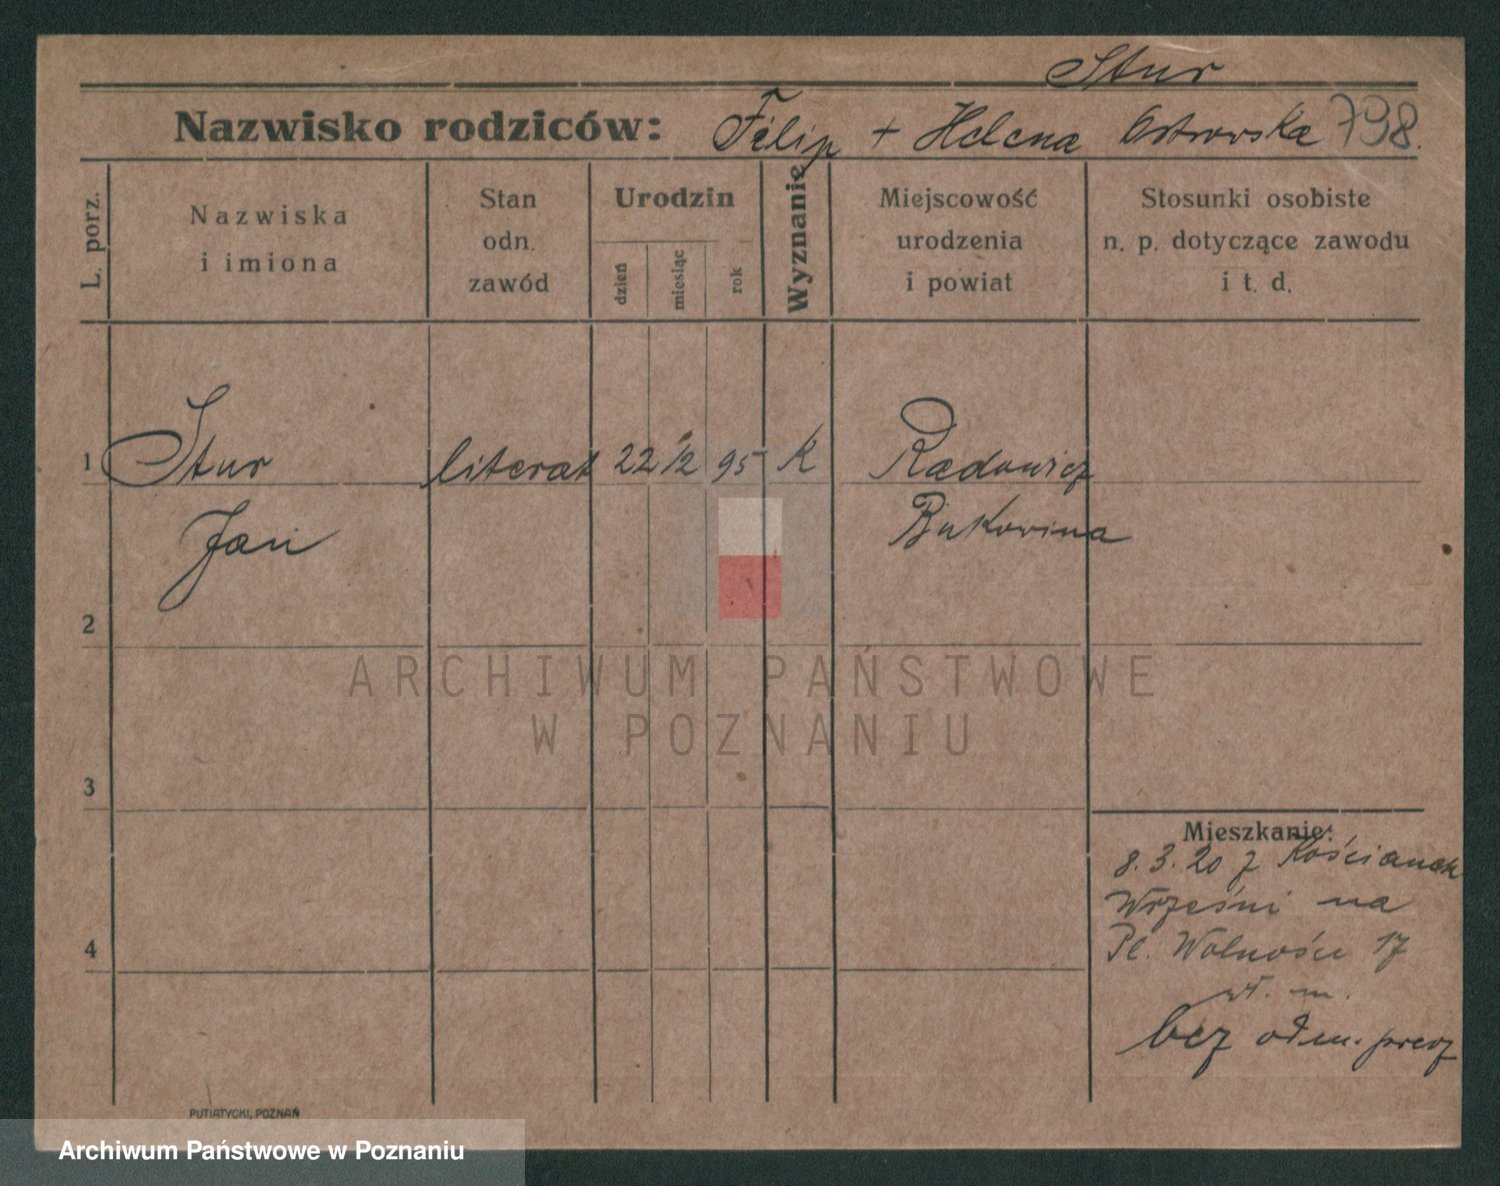 Stur
Nazwisko rodziców: Filip + Helena Ostrowska 798.
L. porz.
Nazwiska
i imiona
Stan
odn.
zawód
Urodzin
dzień
miesiąc
rok
Wyznanie
Miejscowość
urodzenia
i powiat
Stosunki osobiste
n. p. dotyczące zawodu
i t. d.
1 Stur literat 22 12 95 K Radowicz
Jan Bukowina
2
ARCHIWUM PAŃSTWOWE
W POZNANIU
3
Mieszkanie:
8.3.20 z
Wrześni na
4 Pl. Wolności 17
wł. m.
bez odm.
PUTIATYCKI, POZNAŃ
Archiwum Państwowe w Poznaniu